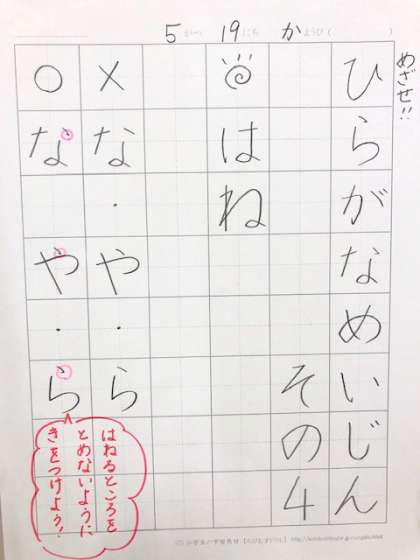 5がつ 19にち かようび( )
めざせ!!
ひらがなめいじん
その4
はね
×な・や・ら
○な・や・ら
はねるところを
とめないように
きをつけよう!